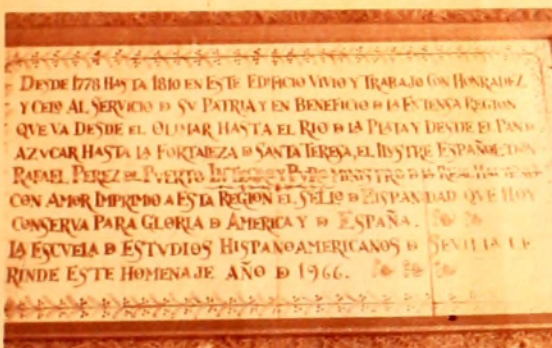 DESDE 1778 HASTA 1810 EN ESTE EDIFICIO VIVIO Y TRABAJO CON HONRADEZ
Y CELO AL SERVICIO D SV PATRIA Y EN BENEFICIO D LA EXTENSA REGION
QVE VA DESDE EL OLIMAR HASTA EL RIO D LA PLATA Y DESDE EL PAN D
AZVCAR HASTA LA FORTALEZA D SANTA TERESA, EL ILVSTRE ESPAÑOL DON
RAFAEL PEREZ DEL PVERTO MINISTRO D LA REAL
CON AMOR IMPRIMIO A ESTA REGION EL SELLO D HISPANIDAD QVE HOY
CONSERVA PARA GLORIA D AMERICA Y D ESPAÑA.
LA ESCVELA D ESTVDIOS HISPANOAMERICANOS D SEVILLA LE
RINDE ESTE HOMENAJE AÑO D 1966.